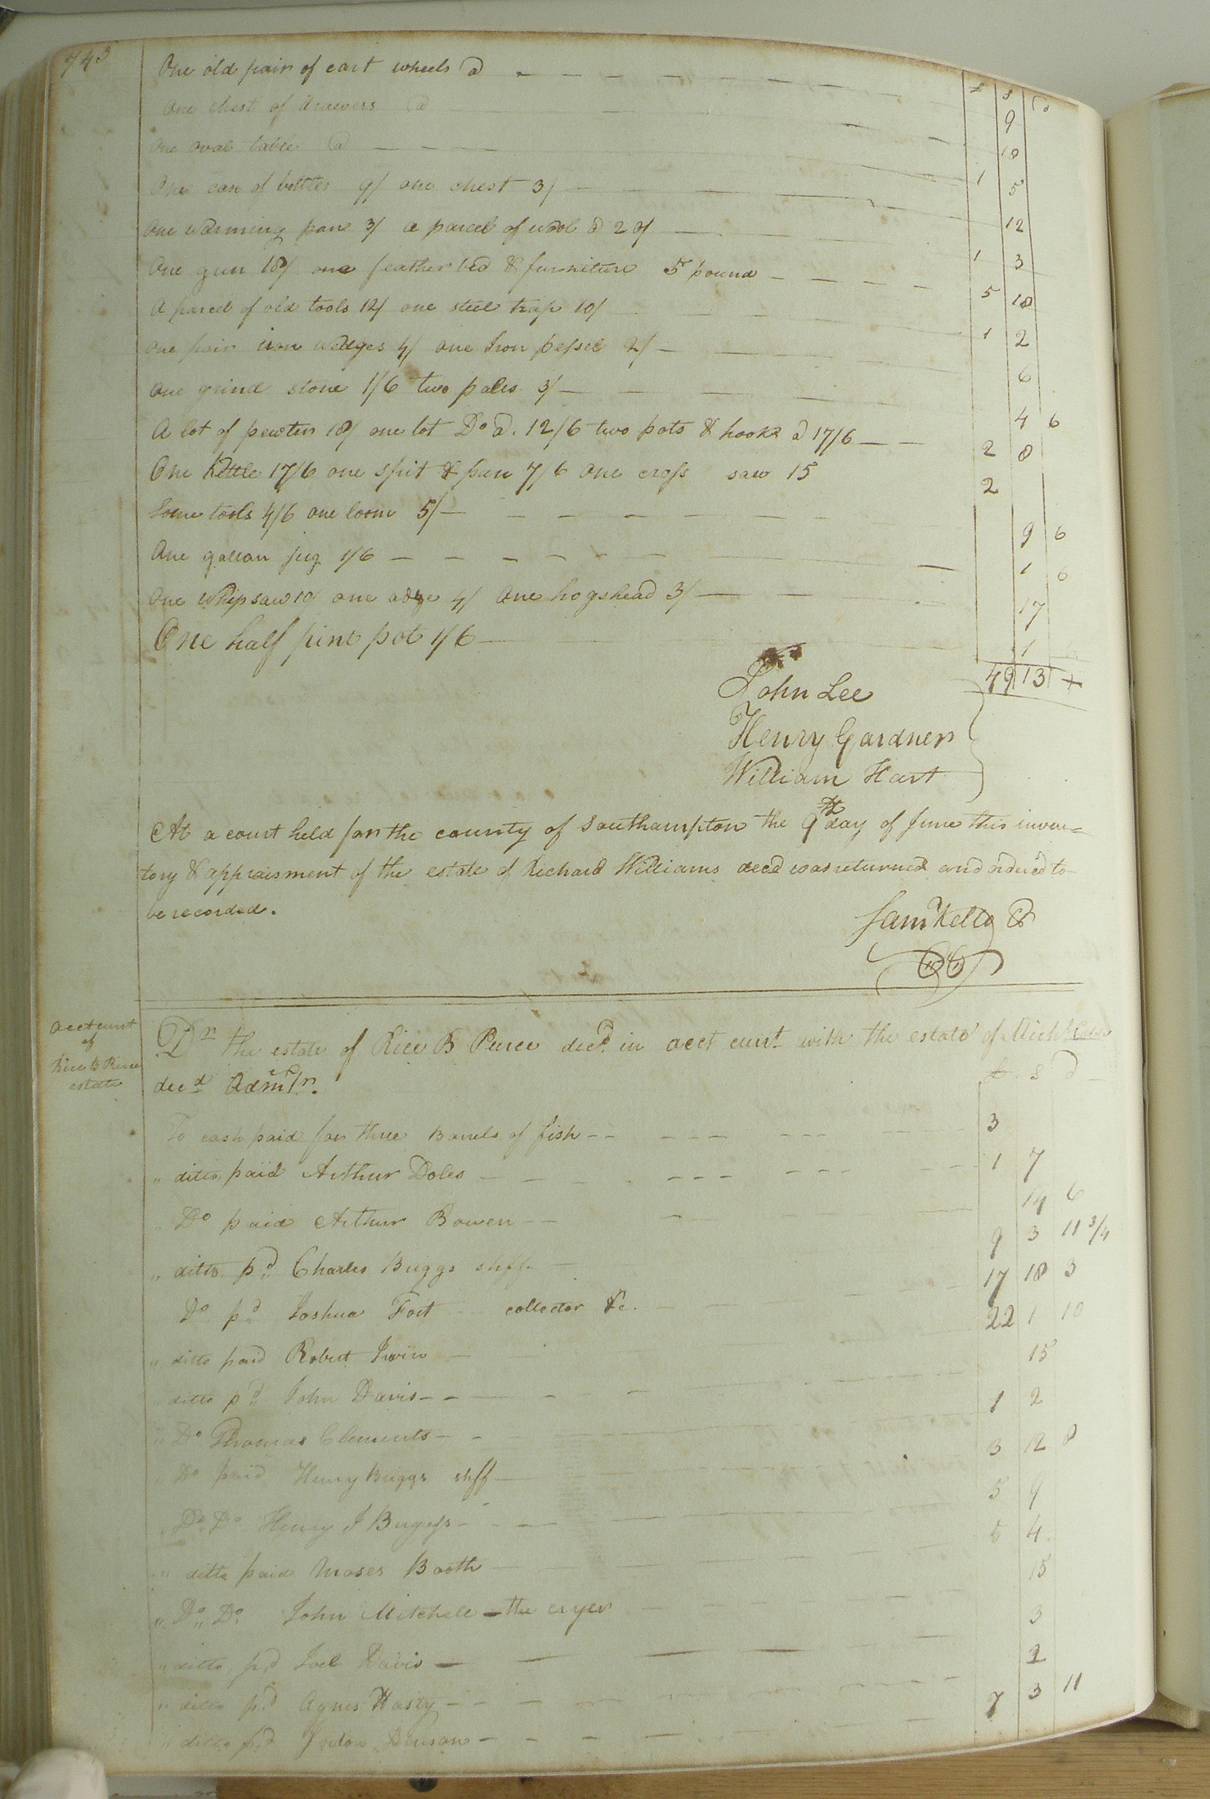 743
£ s d
One old pair of cart wheels @ 9
One chest of drawers @ 18
One oval table @ 1 5
One case of bottles 9/ one chest 3/ 12
One warming pan 3/ a parcel of wool @ 20/ 1 3
One gun 18/ one feather bed & furniture 5 pound 5 18
A parcel of old tools 12/ one steel trap 10/ 1 2
One pair iron wedges 4/ one Iron pessel 2/ 6
One grind stone 1/6 two pales 3/ 4 6
A lot of pewter 18/ one lot Do @. 12/6 two pots & hooks @ 17/6 2 8
One kettle 17/6 one spit & pan 7/6 one cross saw 15 2
Some tools 4/6 one loom 5/ 9 6
One gallon jug 1/6 1 6
One whipsaw 10 one adze 4/ One hogshead 3/ 17
One half pint pot 1/6 1
49 13
John Lee
Henry Gardner
William Hart
At a court held for the county of Southampton the 9th day of June this inven=
tory & appraisment of the estate of Richard Williams decd was returned and ordered to
be recorded.
Saml Kello
Account
of
Rice B Pierce
estate
Dr the estate of Rice B Pierce decd. in acct curt with the estate of Richd
decd Admr.
£ s d
To cash paid for three Barrels of fish 3
" ditto paid Arthur Doles 1 7
" Do paid Arthur Bowen 14 6
" ditto pd Charles Briggs shff 9 3 11 3/4
" Do pd Joshua Fort collector &c. 17 18 3
" ditto paid Robert Irwin 22 1 10
" ditto pd John Davis 15
" Do Thomas Clements 1 2
" Do paid Henry Briggs shff 3 12 8
" Do Do Henry J Burgess 5 9
" ditto paid Moses Booth 4
" Do Do John Mitchell the cryer 15
" ditto pd Joel Davis 3
" ditto pd Agnes Hasty 2
" ditto pd Denson 7 3 11